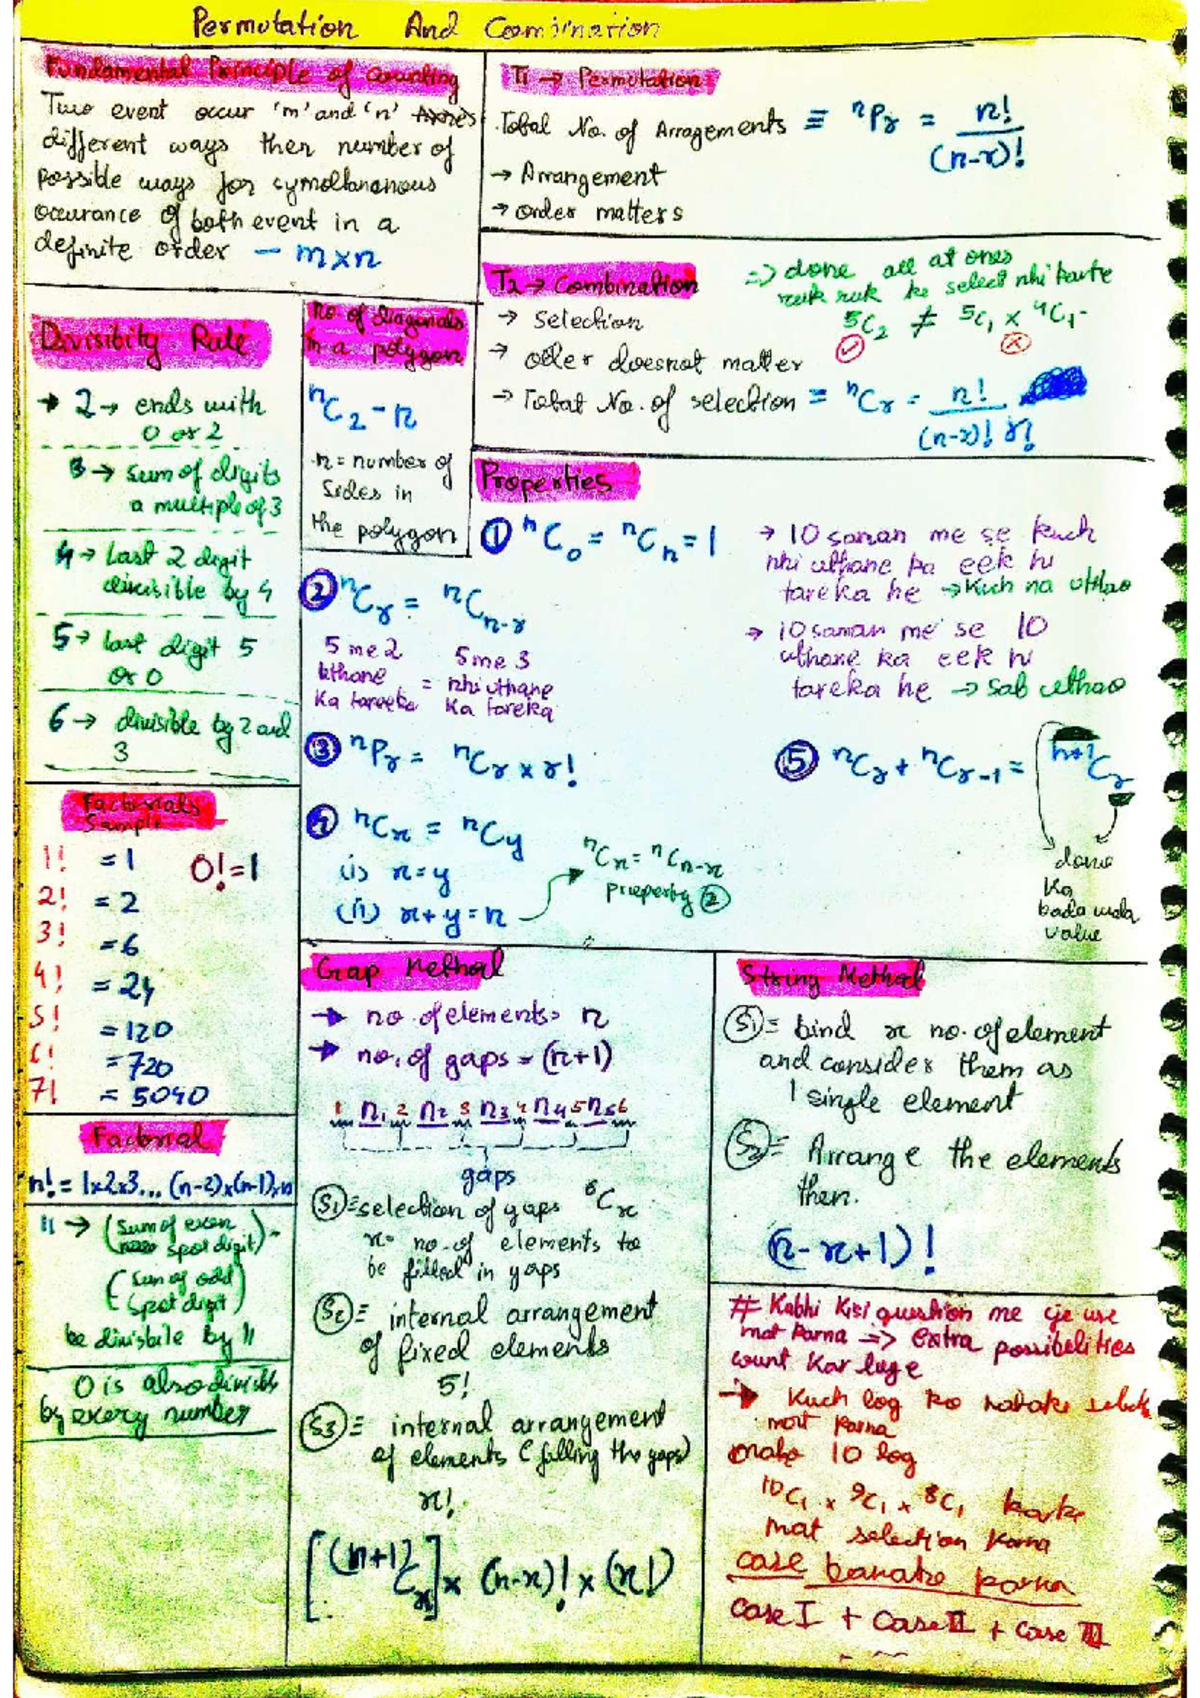 Permutation And Combination
Fundamental Principle of counting
Two event occur 'm' and 'n'
different ways then number of
possible ways for symoltanonous
occurance of both event in a
definite order - m×n
T1 → Permutation
Total No. of Arragements ≡ ⁿPᵣ = n!/(n-r)!
→ Arrangement
→ order matters
T2 → Combination
→ selection
→ oder doesnot matter
→ Total No. of selection ≡ ⁿCᵣ = n!/(n-r)! r!
⇒ done all at ones
ruk ruk ke select nhi karte
⁵C₂ ≠ ⁵C₁ × ⁴C₁
Divisibity Rule
→ 2 → ends with
0 or 2
3 → sum of digits
a multiple of 3
4 → Last 2 digit
divisible by 4
5 → last digit 5
or 0
6 → divisible by 2 and
3
No. of diagonals
in a polygon
ⁿC₂ - n
n = number of
sides in
the polygon
Properties
① ⁿC₀ = ⁿCₙ = 1
→ 10 saman me se kuch
nhi uthane ka eek hi
tareka he → kuch na uthao
→ 10 saman me se 10
uthane ka eek hi
tareka he → sab uthao
② ⁿCᵣ = ⁿCₙ₋ᵣ
5 me 2 uthane ka tareeka = 5 me 3 nhi uthane ka tareka
③ ⁿPᵣ = ⁿCᵣ × r!
④ ⁿCx = ⁿCy
(i) x = y
(ii) x + y = n
ⁿCx = ⁿCn-x
property ②
⑤ ⁿCᵣ + ⁿCᵣ₋₁ = ⁿ⁺¹Cᵣ
dono
ka
bada wala
value
Factorials
Sample
1! = 1 0! = 1
2! = 2
3! = 6
4! = 24
5! = 120
6! = 720
7! = 5040
Factorial
n! = 1×2×3... (n-2)×(n-1)×n
11 → (sum of even
spot digit) -
(sum of odd
spot digit)
be divisbile by 11
0 is also divisible
by every number
Gap Method
→ no of elements = n
→ no. of gaps = (n+1)
1 n₁ 2 n₂ 3 n₃ 4 n₄ 5 n₅ 6
gaps
S1 = selection of gaps ⁶Cx
x = no. of elements to
be filled in gaps
S2 = internal arrangement
of fixed elements
5!
S3 = internal arrangement
of elements (filling the gaps)
x!
[(n+1)Cx] × (n-x)! × (x!)
String Method
S1 = bind x no. of element
and consider them as
1 single element
S2 = Arrange the elements
then.
(n-x+1)!
# Kabhi kisi question me ye use
mat karna ⇒ extra possibelities
count kar luge
→ Kuch log ko select
mat karna
10 log
¹⁰C₁ × ⁹C₁ × ⁸C₁ karke
mat selection karna
case banake karna
case I + case II + case III